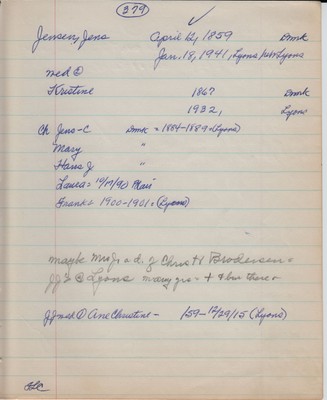 379
Jensen, Jens April 12, 1859 Dmrk
Jan. 18, 1941, Lyons Lyons
md ②
Kristine 1867 Dmrk
1932, Lyons
Ch Jens-C Dmrk = 1884-1889 = (Lyons)
Mary "
Hans J "
Laura = 10/17/90 Blair
Frank = 1900-1901 = (Lyons)
maybe Mrs J = d. of Chris H Brodersen =
JJ @ Lyons many yrs = + & bur there =
JJ md ① Ane Christine - /59-12/29/15 (Lyons)